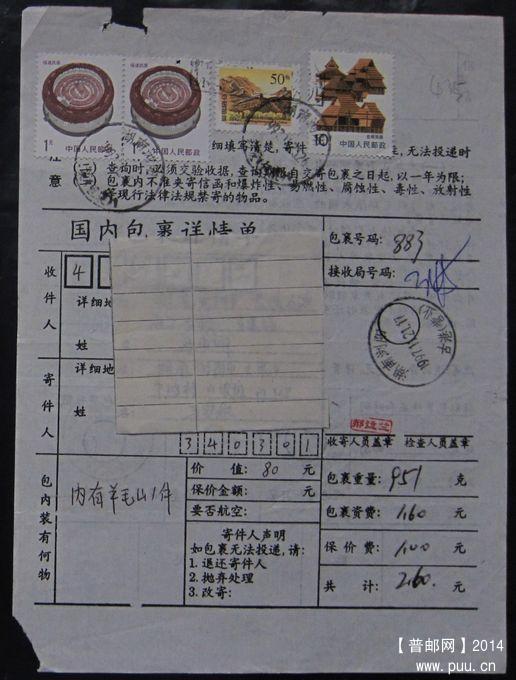 福建民居
福建民居
50分
云南民居
1元
中国人民邮政
中国人民邮政
10
中国人民邮政
细填写清楚，寄件
无法投递时
注意
查询时，必须交验收据，查询 自交寄包裹之日起，以一年为限；
包裹内不准夹寄信函和爆炸性、易燃性、腐蚀性、毒性、放射性
等现行法律法规禁寄的物品。
国内包裹详情单
包裹号码：883
接收局号码：
收件人
4
详细地
姓
寄件人
详细地
姓
340301
收寄人员盖章
检查人员盖章
湖南
1997.11.21.17
包内装有何物
内有羊毛山1件
价 值：80 元
保价金额： 元
要否航空：
寄件人声明
如包裹无法投递，请：
1. 退还寄件人
2. 抛弃处理
3. 改寄：
包裹重量：951 克
包裹资费：1.60 元
保价费：1.00 元
共 计：2.60. 元
【普邮网】2014
www.puu.cn